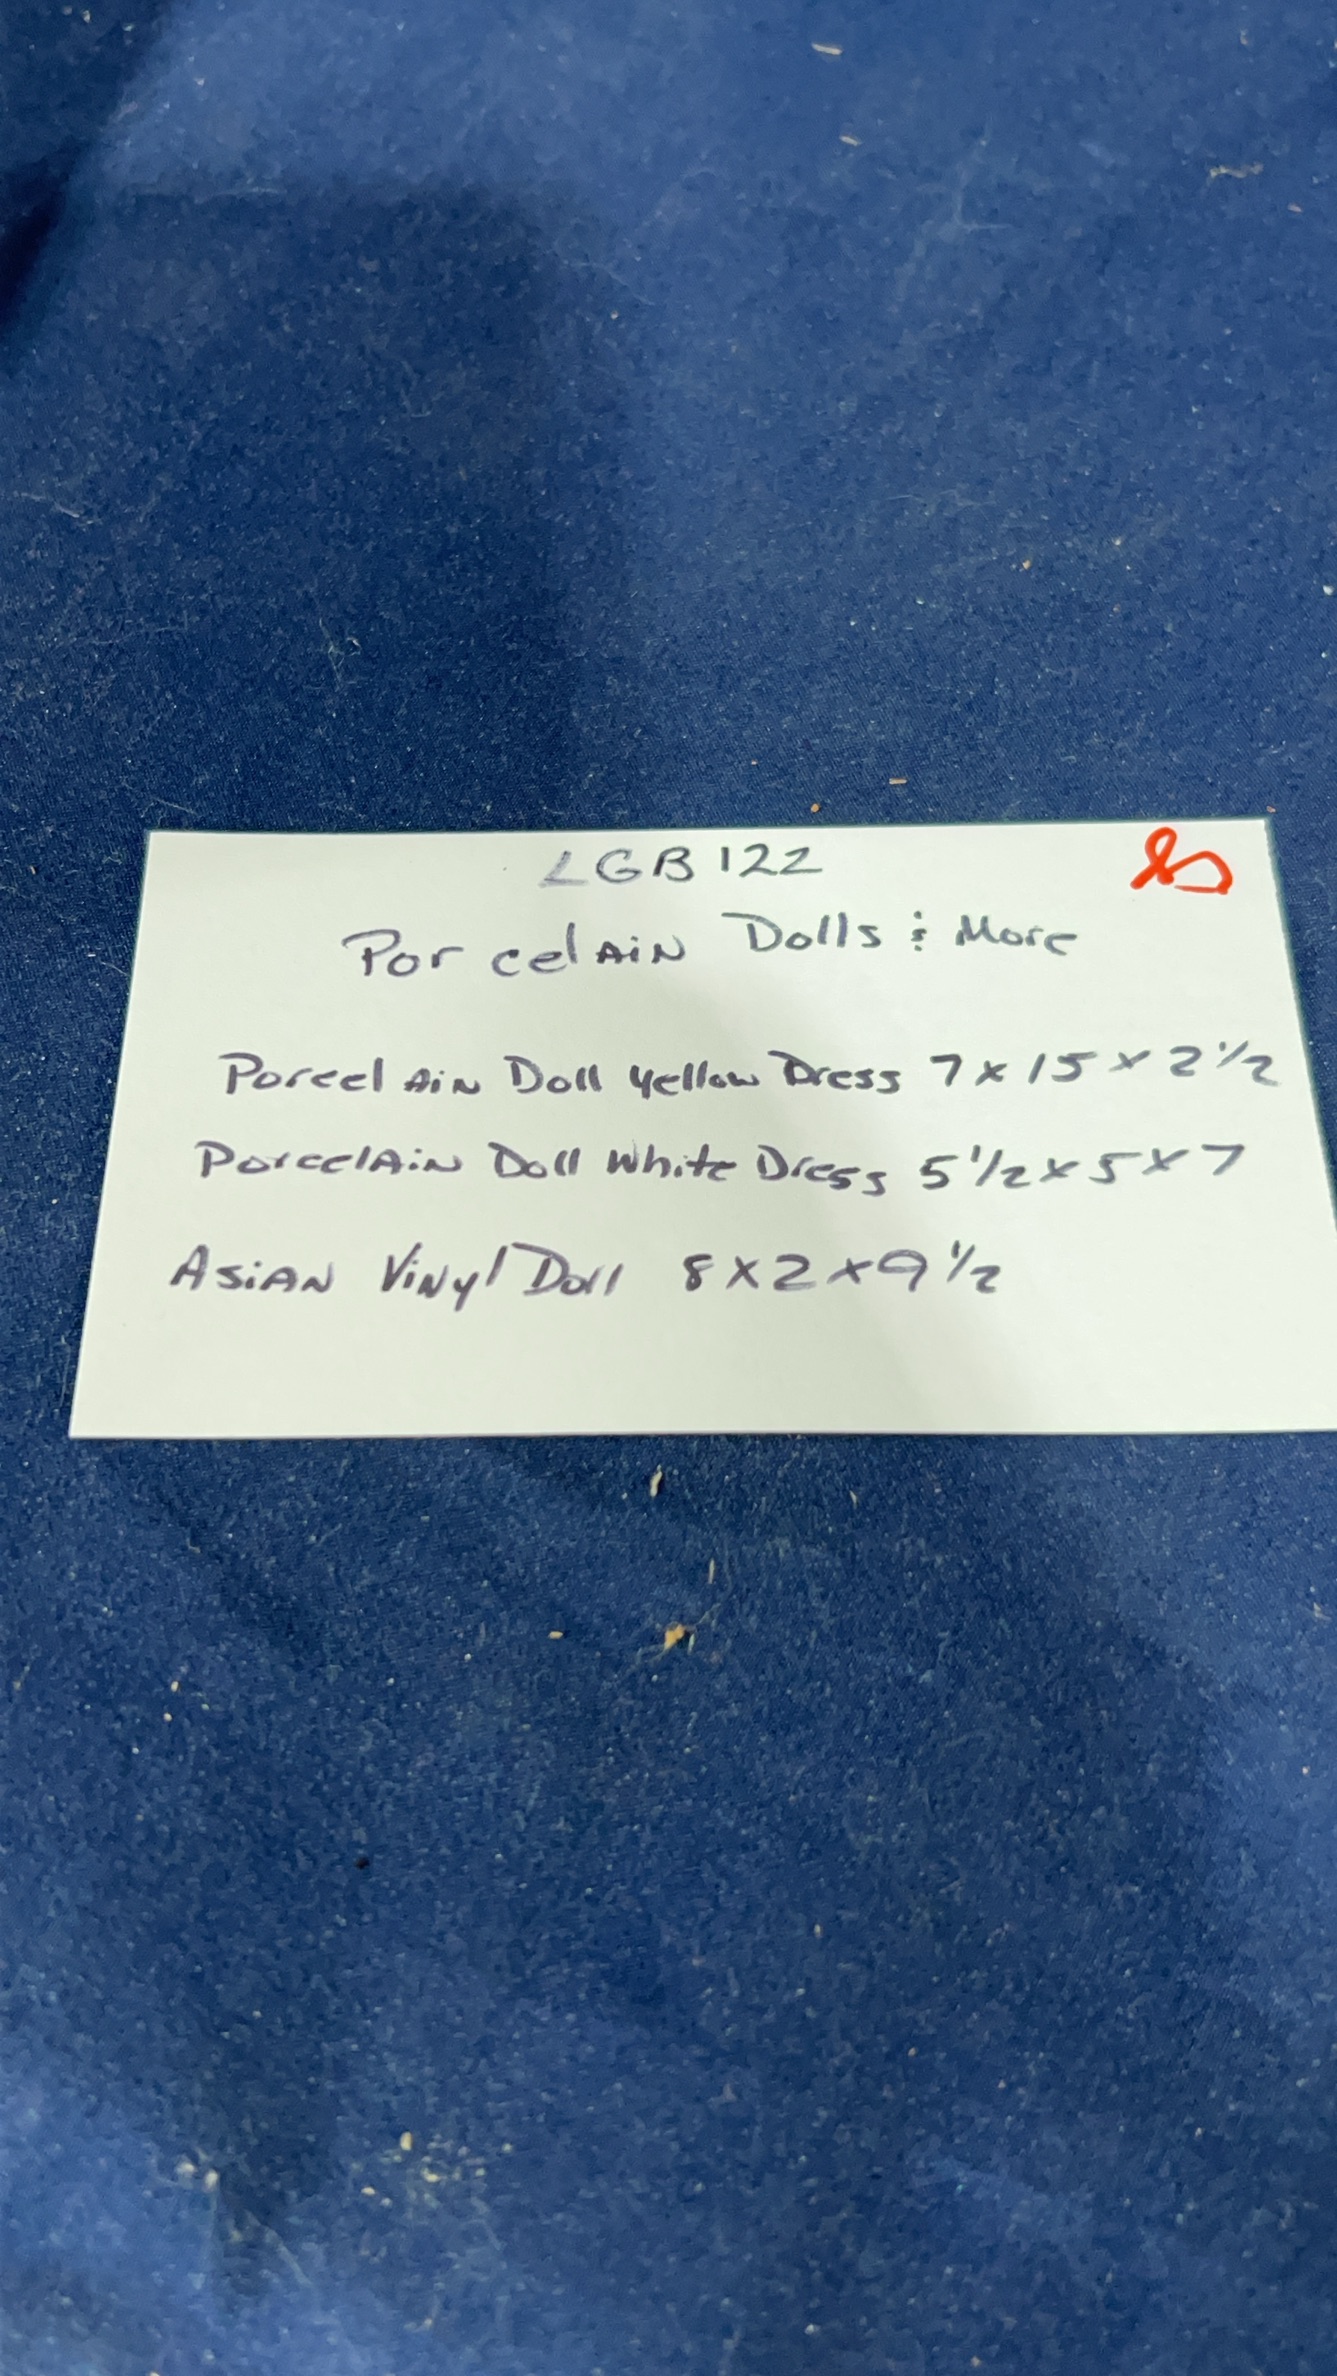 LGB 122
Porcelain Dolls & More
Porcelain Doll Yellow Dress 7 x 15 x 2 1/2
Porcelain Doll White Dress 5 1/2 x 5 x 7
Asian Vinyl Doll 8 x 2 x 9 1/2